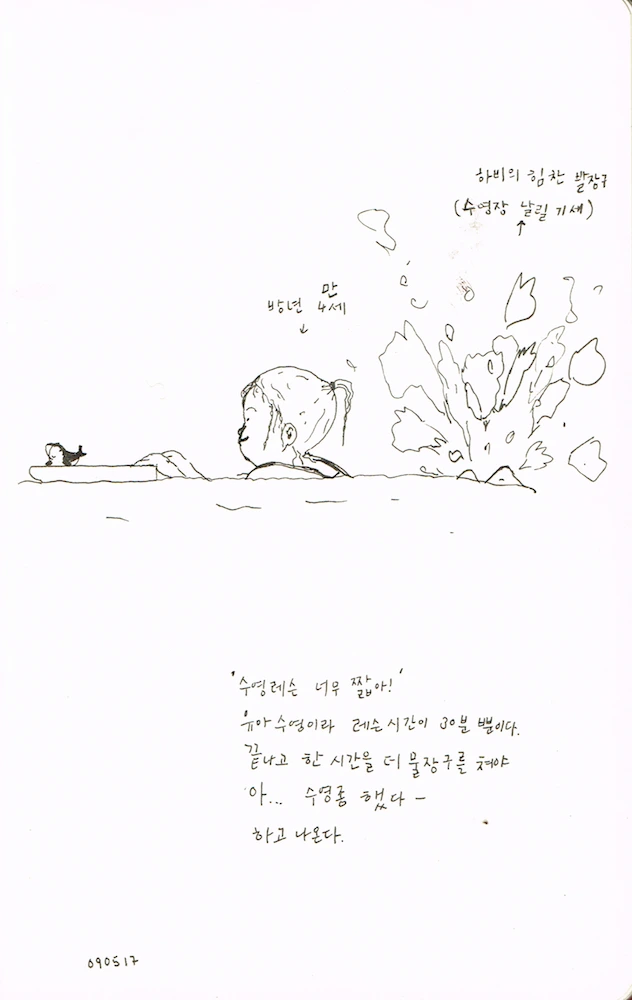 하비의 힘찬 발장구
(수영장 날릴 기세)
↑
만
방년 4세
↓
'수영레슨 너무 짧아!'
유아수영이라 레슨시간이 30분 뿐이다.
끝나고 한 시간을 더 물장구를 쳐야
아... 수영좀 했다 -
하고 나온다.
090517